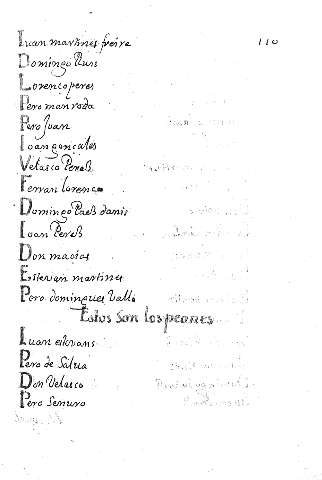 Iuan martines freire 110
Domingo Ruis
Lorenco peres
Pero manroda
Pero Juan
Ioan goncales
Velasco Pereß
Ferran lorenco
Domingo Paeß danis
Ioan Pereß
Don macias
Estevan martines
Pero domingues Vallo
Estos son los peones
Iuan estevans
Pero de Salua
Don Velasco
Pero Senuro